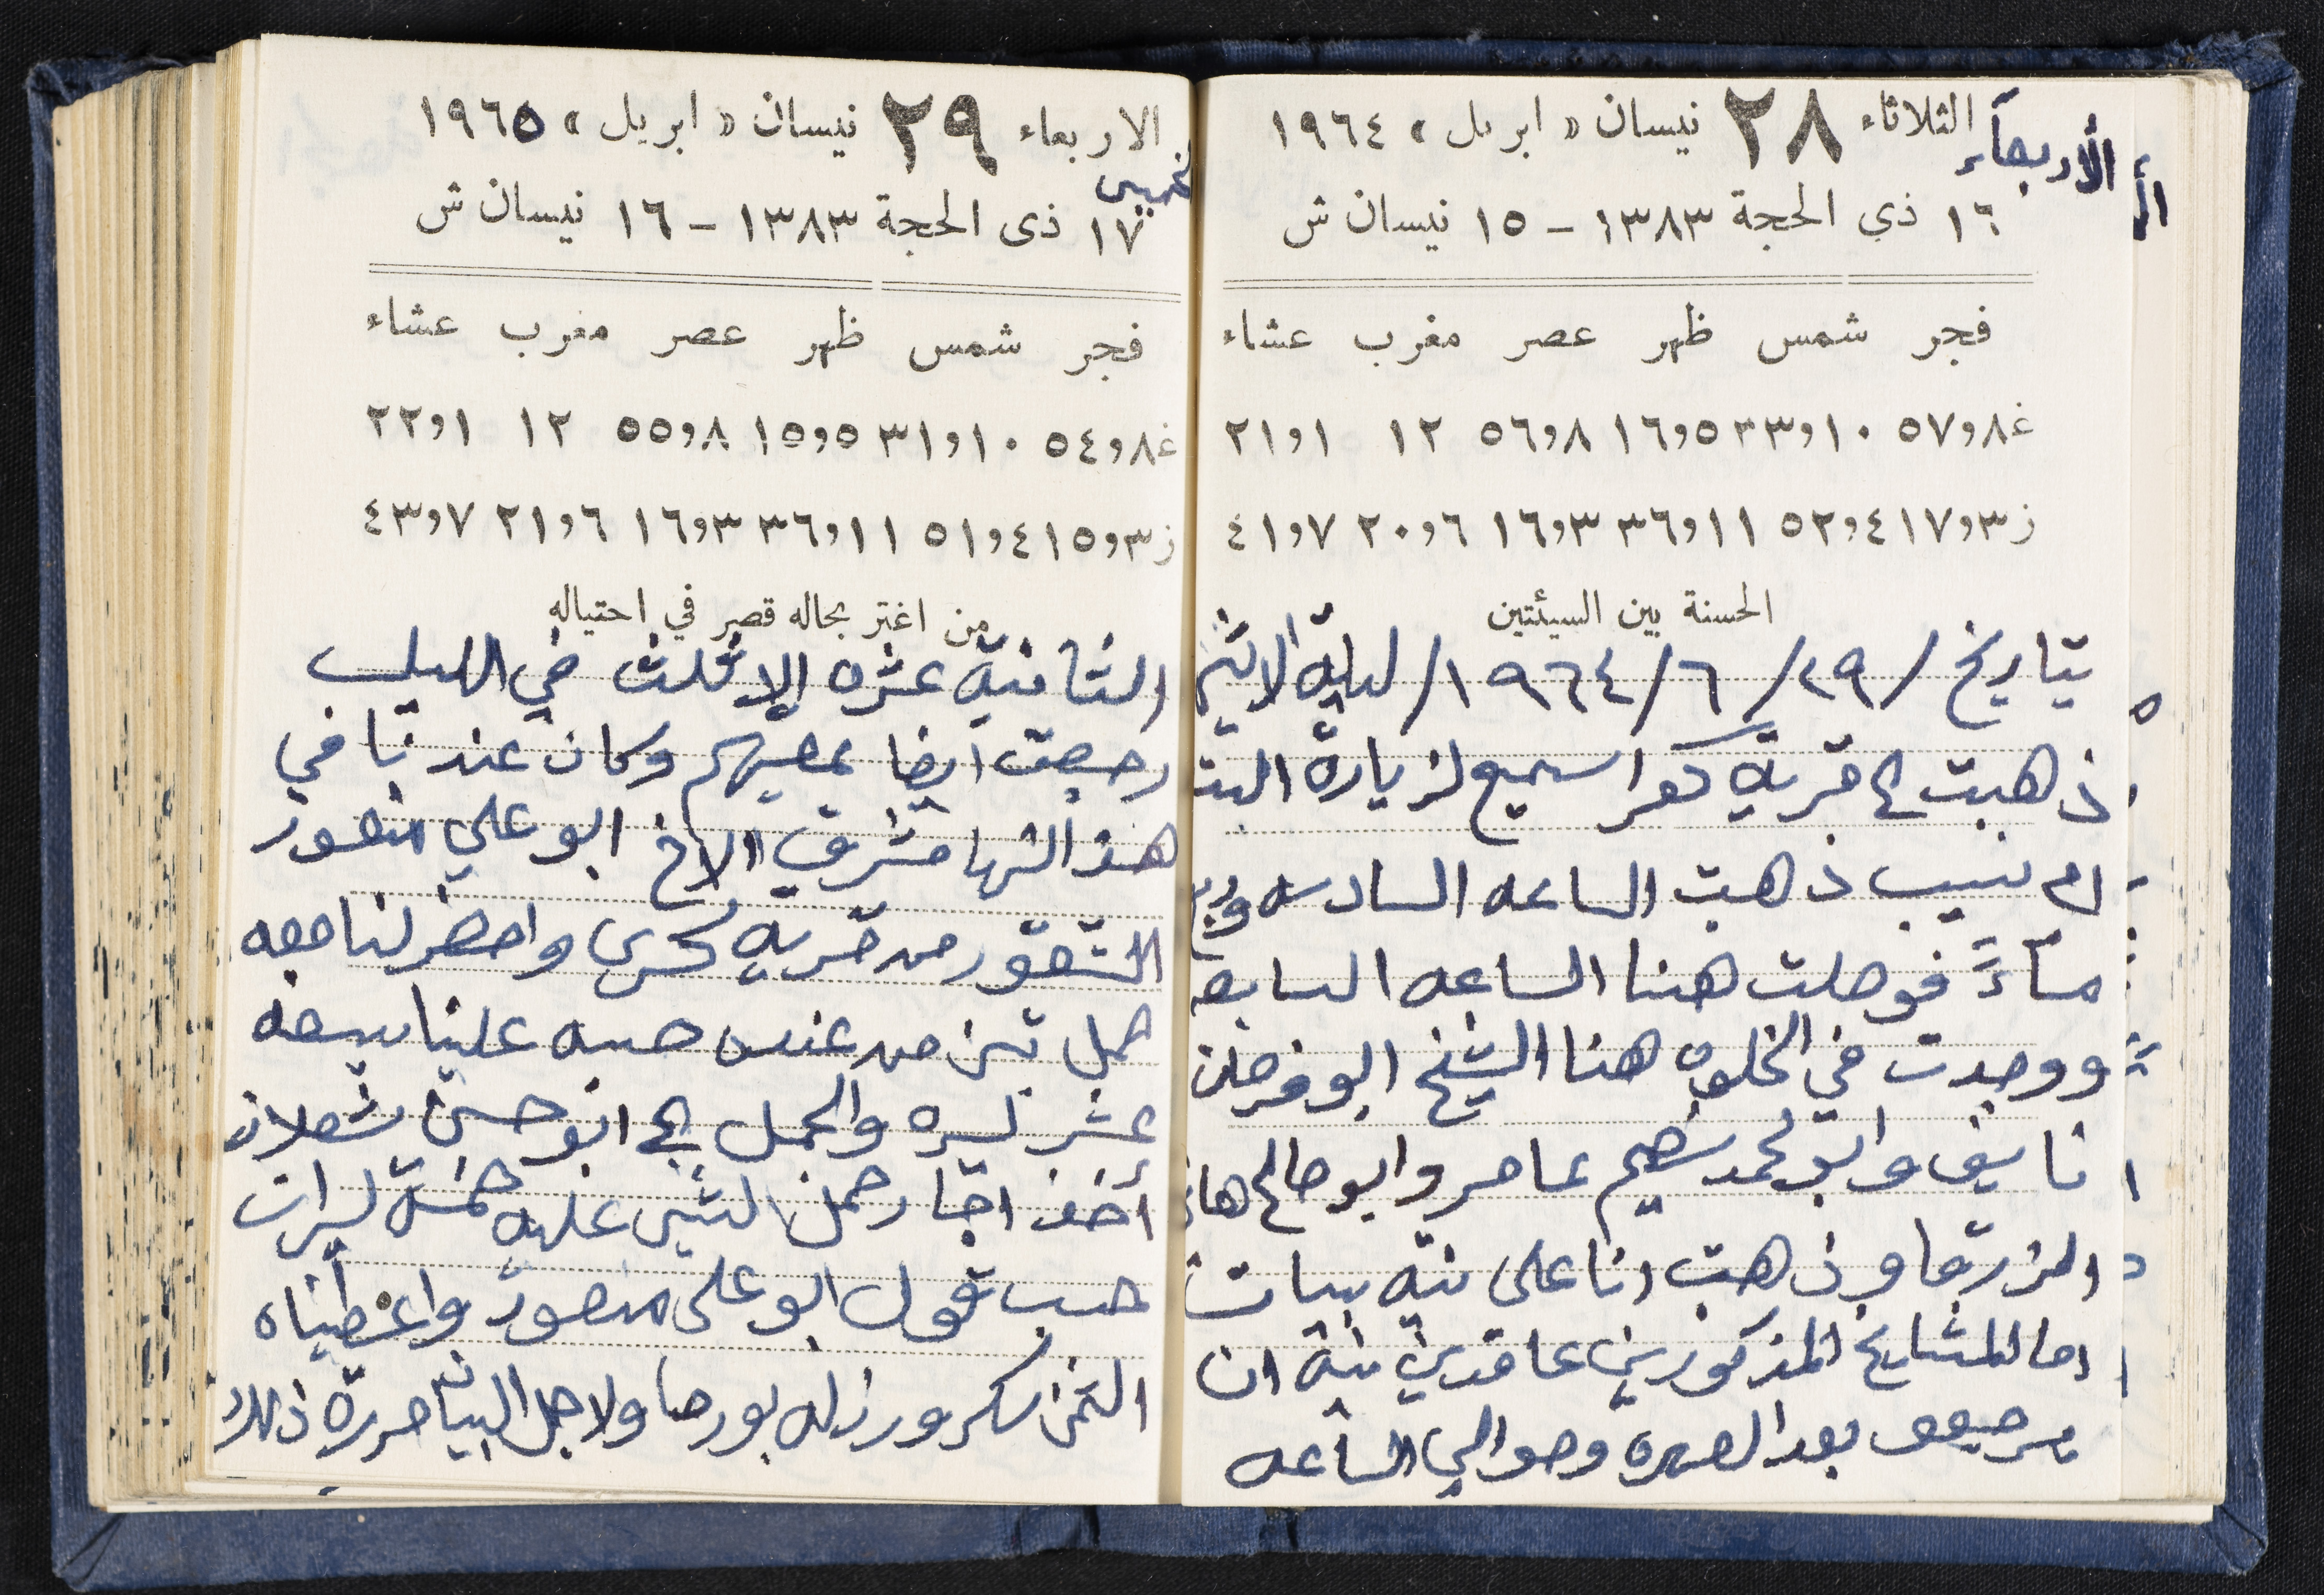 الثلاثاء ٢٨ نيسان « ابريل » ١٩٦٤
الأربعاء
١٦ ذي الحجة ١٣٨٣ – ١٥ نيسان ش
فجر شمس ظهر عصر مغرب عشاء
غ ٨و٥٧ ١٠و٣٣ ٥و١٦ ٨و٥٦ ١٢ ١و٢١
ز ٣و١٧ ٤و٥٢ ١١و٣٦ ٣و١٦ ٦و٢٠ ٧و٤١
الحسنة بين السيئتين
بتاريخ /٢٩/ ٦/ ١٩٦٤/ ليلة الاثنين
ذهبت الى قرية كفر اسميع لزيارة البنت
ام نسيب ذهبت الساعه السادسه وربع
مساءً فوصلت هنا الساعه السابعه
ووجدت في الخلوه هنا الشيخ ابو فرحان
نايف وابو محمد سليم عامر وابو صالح هاني
المزرقا وذهبت انا على نية بيات
اما المشايخ المذكورين عاقدين نية ان
يرجعوا بعد السهره وحوالي الساعه
الاربعاء ٢٩ نيسان « ابريل » ١٩٦٥
لخميس
١٧ ذى الحجة ١٣٨٣ – ١٦ نيسان ش
فجر شمس ظهر عصر مغرب عشاء
غ ٨و٥٤ ١٠و٣١ ٥و١٥ ٨و٥٥ ١٢ ١و٢٢
ز ٣و١٥ ٤و٥١ ١١و٣٦ ٣و١٦ ٦و٢١ ٧و٤٣
من اغتر بحاله قصر في احتياله
الثانية عشره إلا ثلث في الليل
رجعت ايضا بمعيتهم وكان عندنا في
هذا النها مشرق الاخ ابو علي منصور
من قرية كسرى واحضر لنا معه
حمل تبن من عنده حسبه علينا سبعة
عشر ليره والجمل الى ابو حسن شعلان
أخذ اجار حمل التبن عليه خمسة ليرات
حسب قول ابو علي منصور واعطيناه
الثمن سكر ورز له بورصا ولاجل البيان حررة ذلك